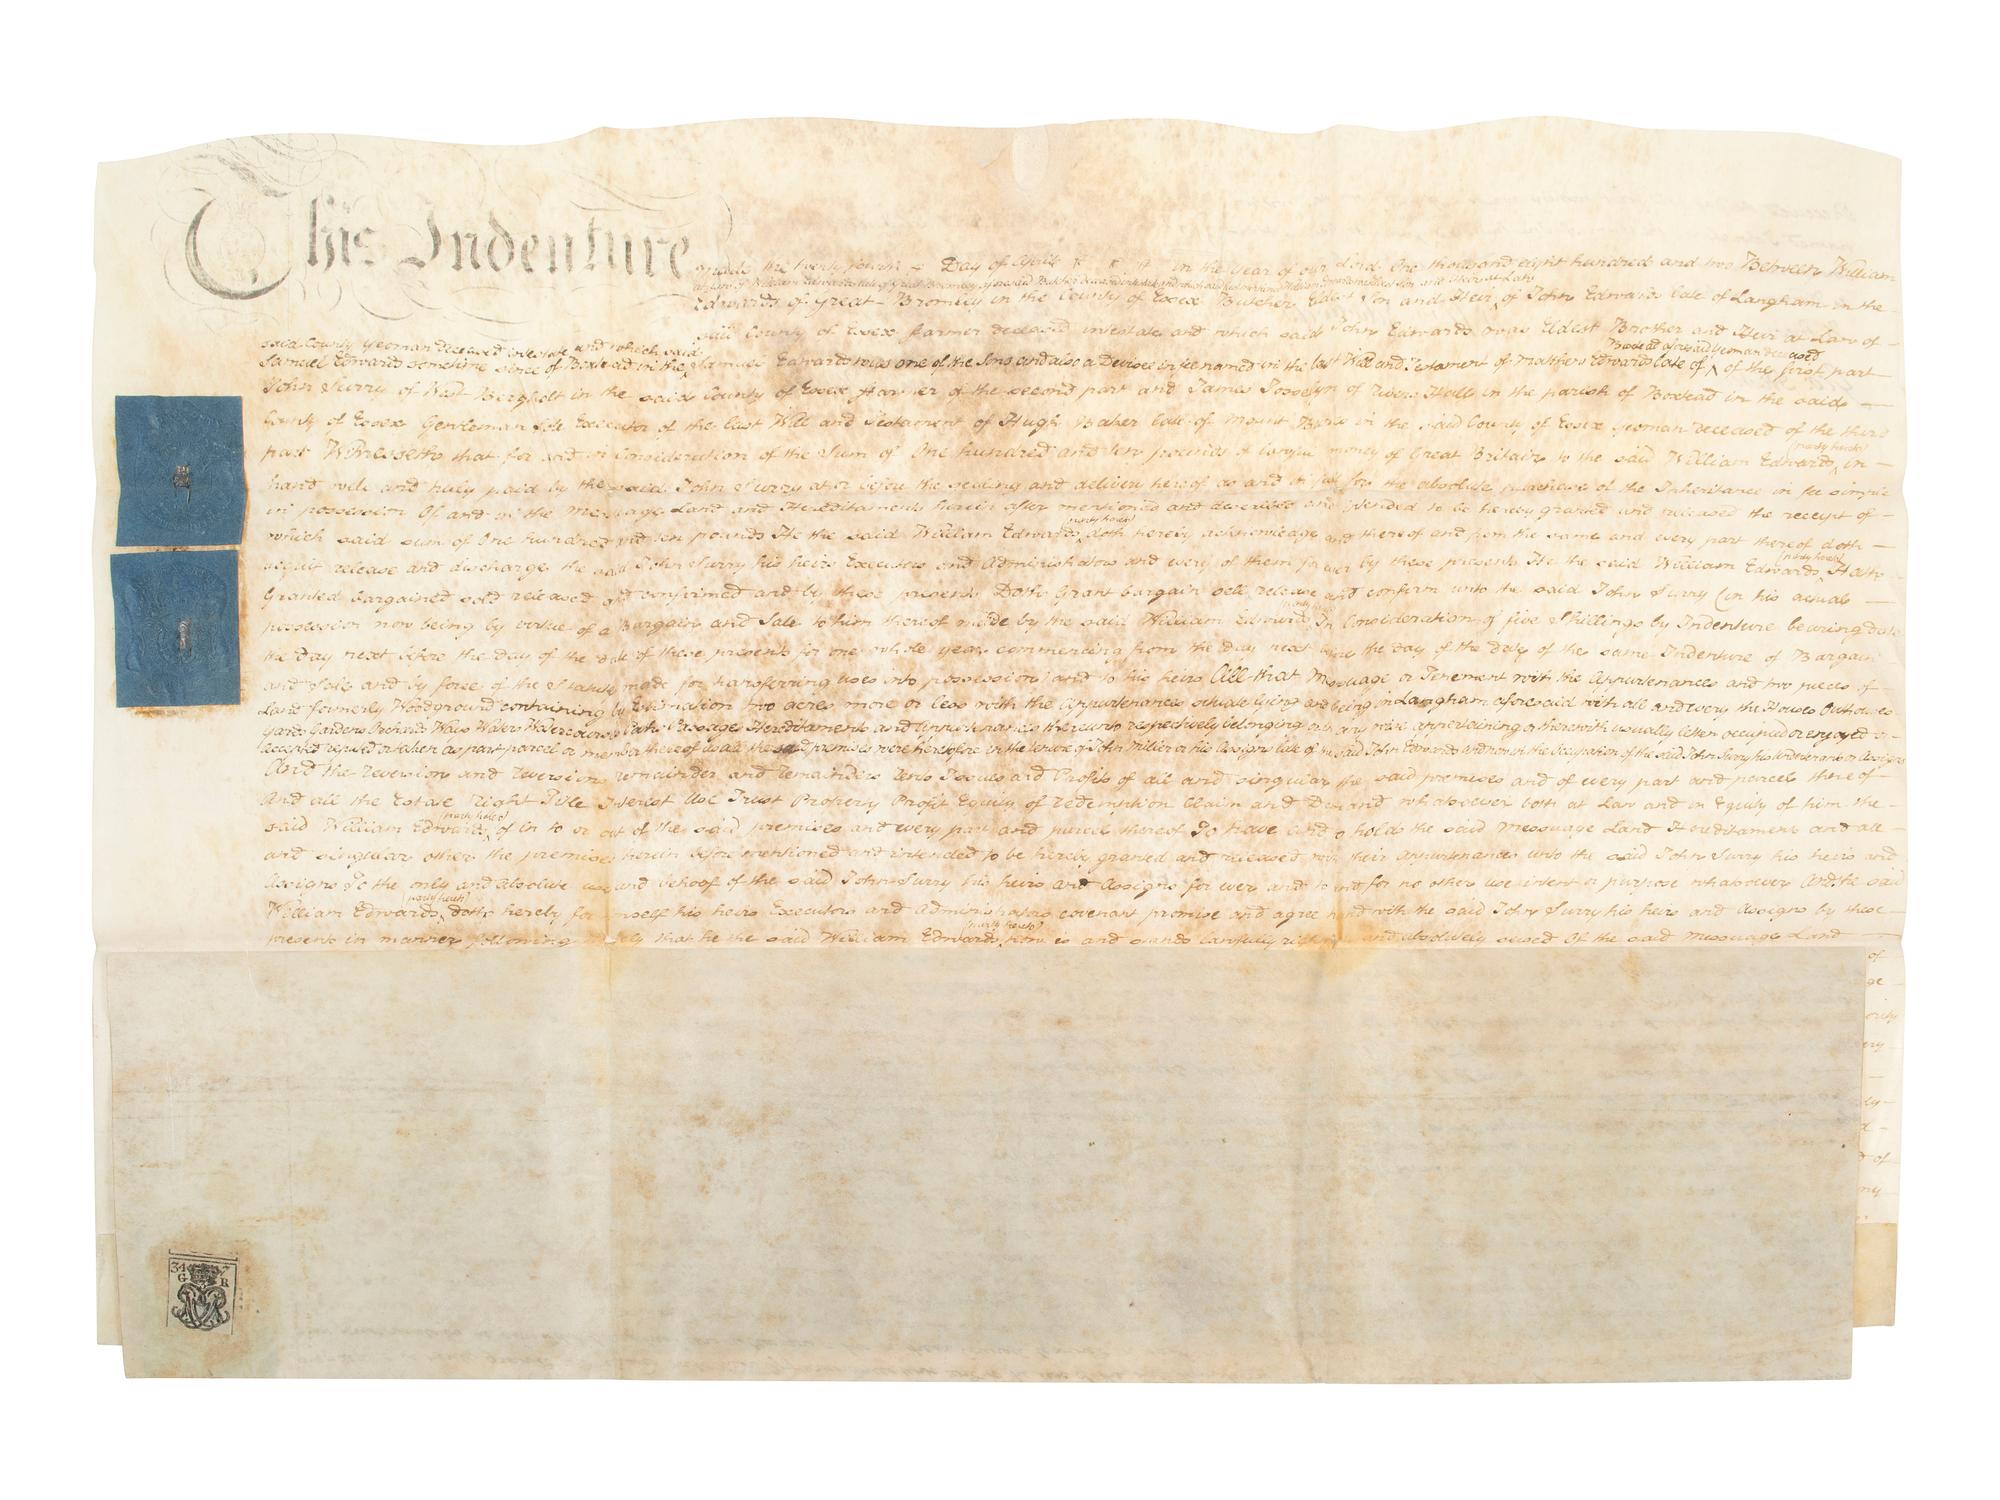 This Indenture made the twenty fourth Day of April in the year of our Lord One thousand eight hundred and two Between William
Edwards of Great Bromley in the County of Essex Butcher Eldest Son and Heir of John Edwards late of Langham in the
said County of Essex Farmer deceased intestate and which said John Edwards was Eldest Brother and Heir at Law of
said County Yeoman deceased intestate and which said
Boxtead aforesaid Yeoman deceased
Samuel Edwards sometime since of Boxtead in the Samuel Edwards was one of the Sons and also a Devisee in fee named in the last Will and Testament of Matthew Edwards late of of the first part
John Surry of West Bergholt in the said County of Essex Farmer of the second part and James Josselyn of Rivers Hall in the parish of Boxtead in the said
County of Essex Gentleman Sole Executor of the last Will and Testament of Hugh Baker late of Mount Bures in the said County of Essex Yeoman deceased of the third
(party hereto)
part Witnesseth that for and in Consideration of the Sum of One hundred and ten pounds of lawful money of Great Britain to the said William Edwards in
hand well and truly paid by the said John Surry at or before the sealing and delivery hereof as and in full for the absolute purchase of the Inheritance in fee simple
in possession Of and in the Messuage Land and Hereditaments herein after mentioned and described and intended to be hereby granted and released the receipt of
(party hereto)
which said sum of One hundred and ten pounds He the said William Edwards doth hereby acknowledge and thereof and from the same and every part thereof doth
(party hereto)
acquit release and discharge the said John Surry his heirs Executors and Administrators and every of them for ever by these presents He the said William Edwards Hath
Granted bargained sold released and confirmed and by these presents Doth Grant bargain sell release and confirm unto the said John Surry (in his actual
(party hereto)
possession now being by virtue of a Bargain and Sale to him thereof made by the said William Edwards In Consideration of five Shillings by Indenture bearing date
the day next before the day of the date of these presents for one whole year commencing from the day next before the day of the date of the same Indenture of Bargain
and Sale and by force of the Statute made for transferring uses into possession) and to his heirs All that Messuage or Tenement with the Appurtenances and two pieces of
Land formerly Woodground containing by Estimation two acres more or less with the appurtenances situate lying and being in Langham aforesaid with all and every the Houses Outhouses
Yards Gardens Orchards Ways Waters Watercourses Paths Passages Hereditaments and Appurtenances thereunto respectively belonging or in any wise appertaining or therewith usually taken occupied or enjoyed or
accepted reputed or taken as part parcel or member thereof as all the said premises were heretofore in the tenure of John Miller or his Assigns late of the said John Edwards and now in the Occupation of the said John Surry his undertenants or Assigns
And the Reversion and Reversions remainder and remainders Rents Issues and Profits of all and singular the said premises and of every part and parcel thereof
And all the Estate Right Title Interest Use Trust Property Profit Equity of redemption Claim and Demand whatsoever both at Law and in Equity of him the
(party hereto)
said William Edwards of in to or out of the said premises and every part and parcel thereof To have and to hold the said Messuage Land Hereditaments and all
and singular other the premises herein before mentioned and intended to be hereby granted and released with their Appurtenances unto the said John Surry his heirs and
Assigns To the only and absolute use and behoof of the said John Surry his heirs and Assigns for ever and to and for no other use intent or purpose whatsoever And the said
(party hereto)
William Edwards doth hereby for himself his heirs Executors and Administrators covenant promise and agree to and with the said John Surry his heirs and Assigns by these
(party hereto)
presents in manner following namely that he the said William Edwards now is and stands lawfully rightfully and absolutely seised Of the said Messuage Land
of
G R